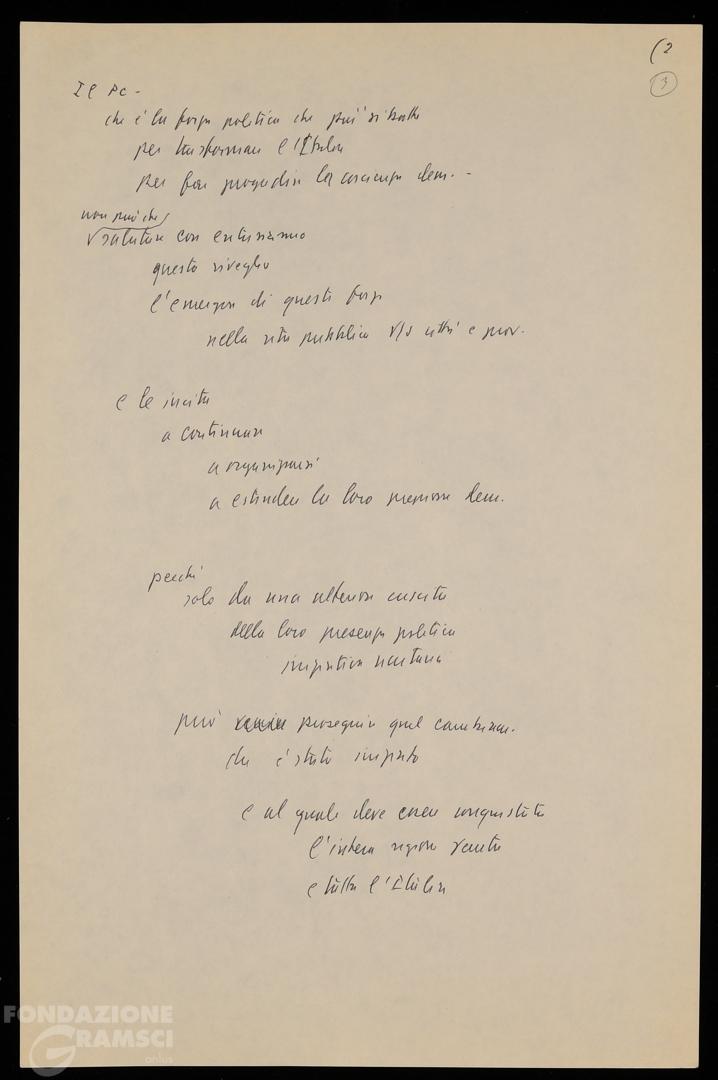 (2
3
Il PC -
che è la forza politica che più si batte
per trasformare l'Italia
per far progredire la coscienza dem. -
non può che
salutare con entusiasmo
questo risveglio
l'emergere di queste forze
nella vita pubblica v/s città e prov.
e le incita
a continuare
a organizzarsi
a estendere la loro pressione dem.
perché
solo da una ulteriore crescita
della loro presenza politica
iniziativa unitaria
può proseguire quel cambiam.
che è stato iniziato
e al quale deve essere conquistata
l'intera regione veneta
e tutta l'Italia
FONDAZIONE
GRAMSCI
onlus